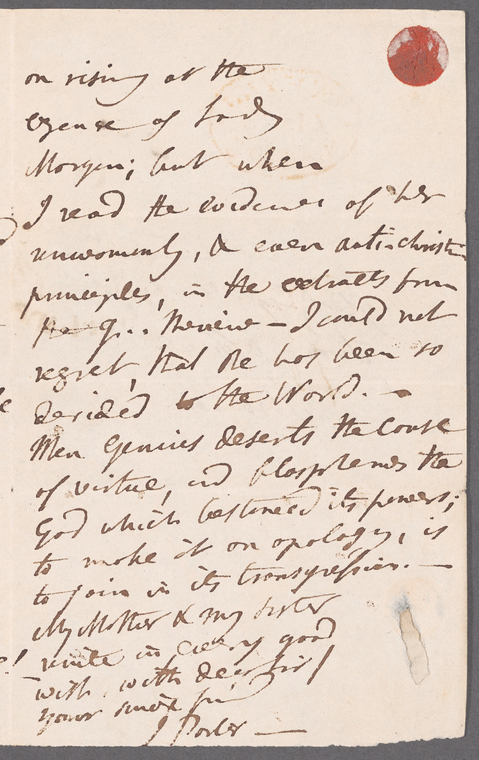 on rising at the
expense of Lady
Morgan; but when
I read the evidence of her
unwomanly, & even anti-christn
principles, in the extracts from
the Q.. Review – I could not
regret, that she has been so
derided to the World. –
When Genius deserts the Cause
of virtue, and blasphemes the
God which bestowed its powers;
to make it an apology, is
to join in its transgression. –
My Mother & my Sister
unite in every good
wish, with dear Sir!
Your sincere
J Porter